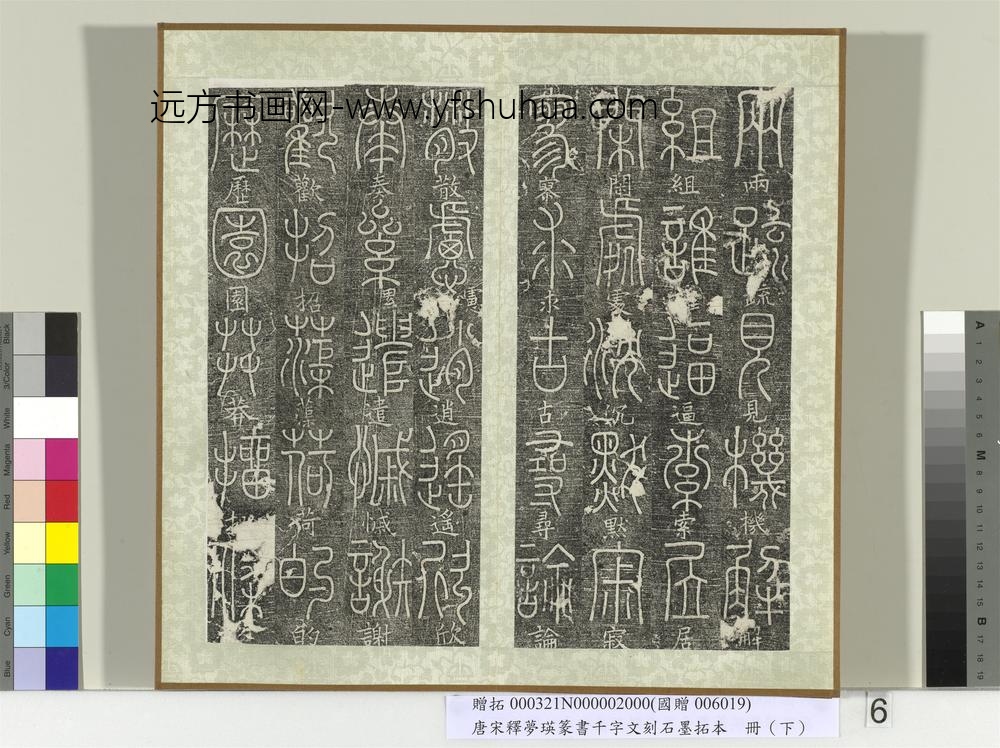 远方书画网-www.yfshuhua.com
兩疏見機解
組誰逼索居
閒處沉默寂
寥求古尋論
散慮逍遙欣
奏累遣慼謝
歡招渠荷的
歷園莽抽條
贈拓 000321N000002000(國贈 006019)
唐宋釋夢瑛篆書千字文刻石墨拓本 冊（下）
6
Black
3/Color
White
Magenta
Red
Yellow
Green
Cyan
Blue
A 1 2 3 4 5 6 M 8 9 10 11 12 13 14 15 B 17 18 19